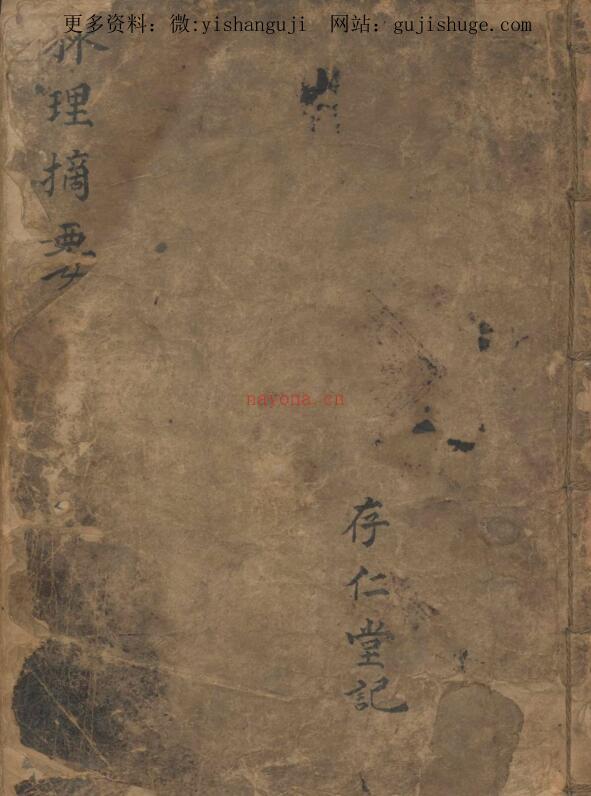 更多资料：微:yishanguji 网站：gujishuge.com
脉理摘要
nayona.cn
存仁堂記